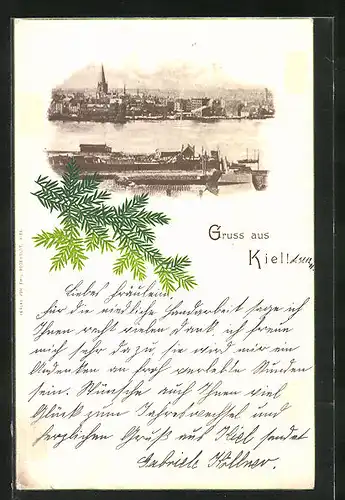 Gruss aus
Kiel!
Liebes Fräulein,
für die niedliche Handarbeit sage ich
Ihnen recht vielen Dank, ich freue
mich sehr dazu, sie wird mir ein
Andenken an froh verlebte Stunden
sein. Wünsche auch Ihnen viel
Glück zum Jahreswechsel und
herzlichen Gruß aus Kiel sendet
Gabriele Höllner.